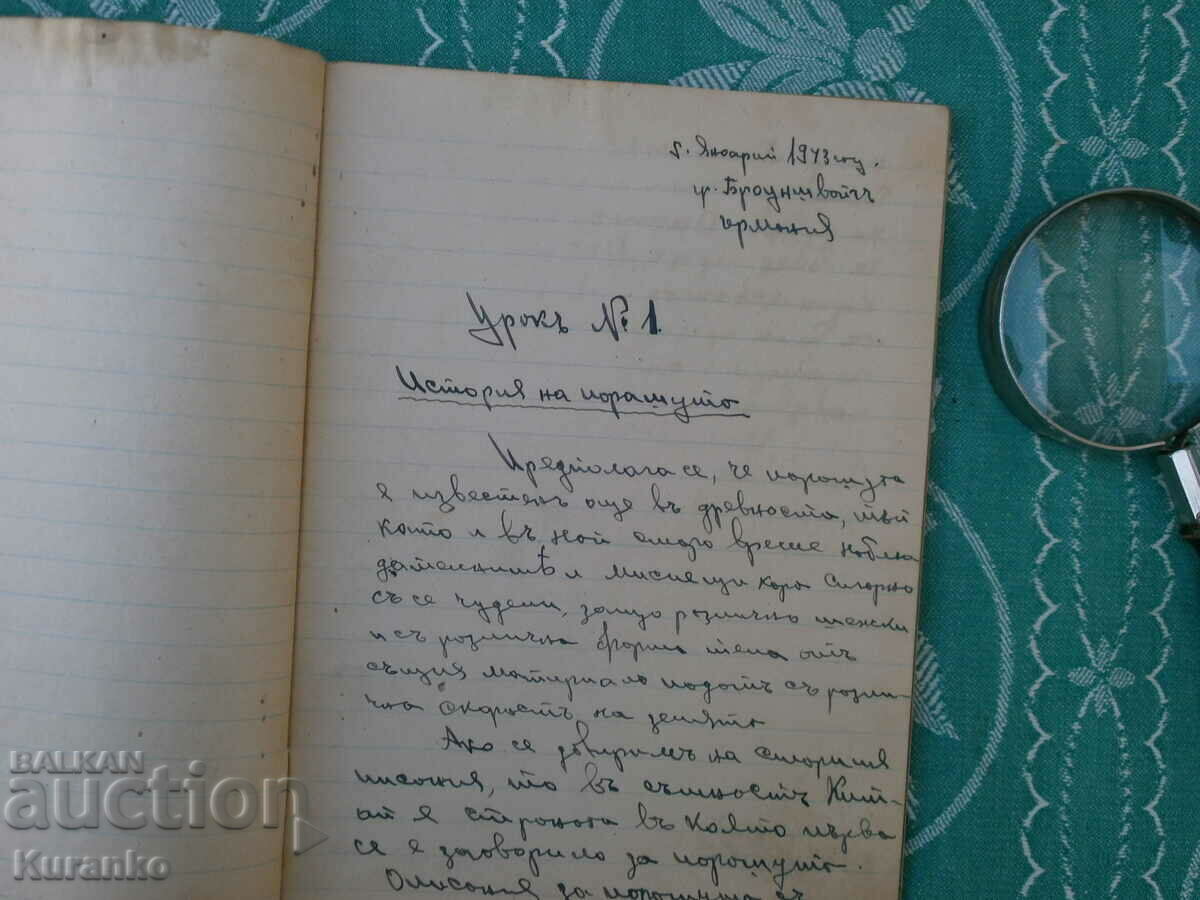 5. Януарий 1943 год.
гр.Броуншвайгъ
Германия
Урокъ № 1.
История на парашута
Предполага се, че парашута
е известенъ още въ древността, тъй
като и въ най старо време наблю
дателнитѣ и мислещи хора
съ се чудели, защо различно тежки
и съ различна форма тела отъ
същия материалъ падатъ съ разли-
чна скорость на земята
Ако се довѣримъ на старитѣ
писания, то въ същность Кит-
ай е страната въ която първа
се е заговорило за парашута.
Описания за парашута съ
BALKAN
auction
Kuranko